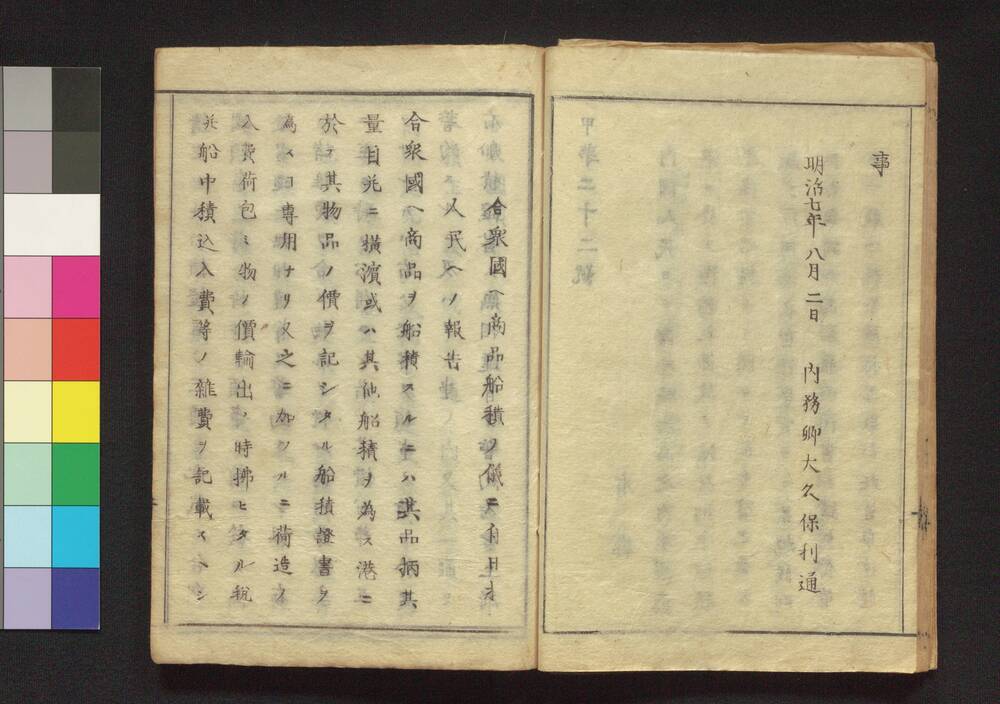 事
明治七年八月二日 内務卿大久保利通
合衆國ヘ商品船積ノ儀ニ付日本
人民ヘノ報告
合衆國ヘ商品ヲ船積スルニハ其品柄其
量目並ニ横濱或ハ其他船積ヲ為ス港ニ
於テ其物品ノ價ヲ記シタル船積證書ヲ
為スヿ専用ナリ又之ニ加フルニ荷造ノ
入費荷包ミ物ノ價輸出ノ時拂ヒタル税
並船中積込入費等ノ雑費ヲ記載スヘシ